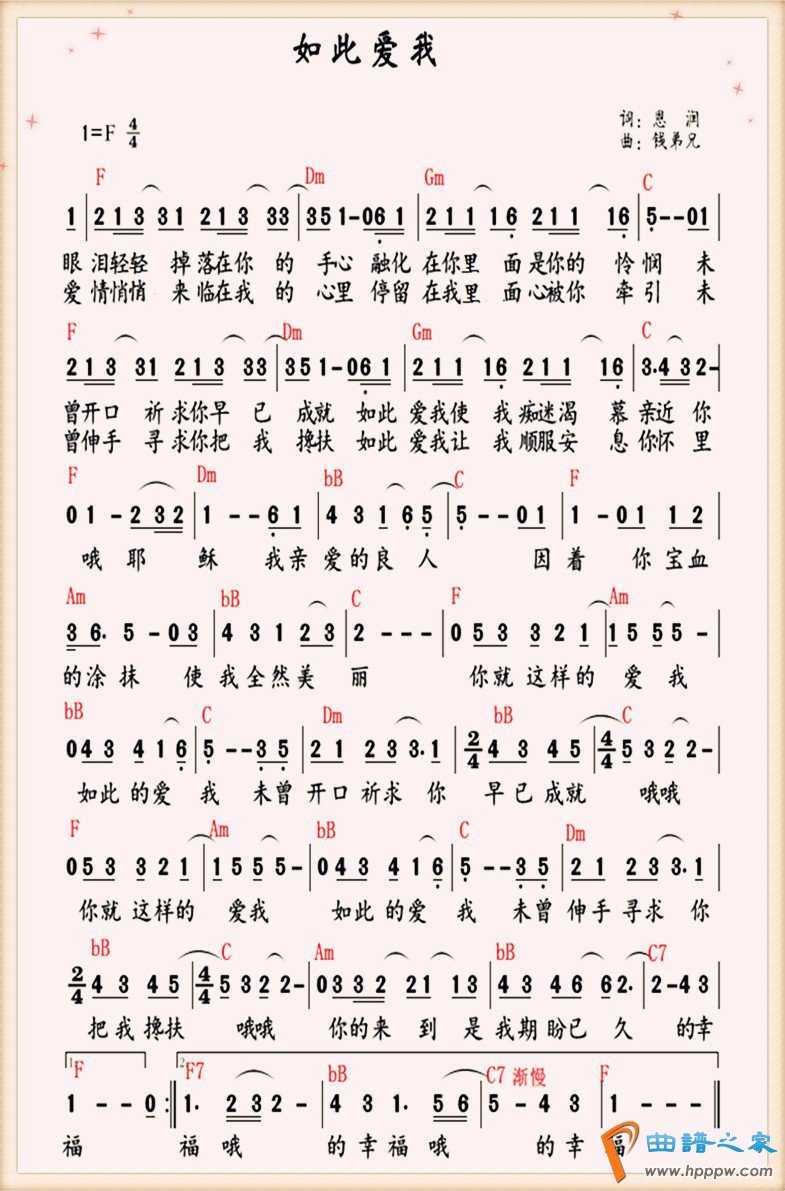 如此爱我
1=F 4/4
词：恩 润
曲：钱弟兄
F Dm Gm C
1 | 2 1 3 3 1 2 1 3 3 3 | 3 5 1 - 0 6 1 | 2 1 1 1 6 2 1 1 1 6 | 5 - - 0 1
眼 泪轻轻 掉落在你 的 手心 融化 在你里 面是你的 怜悯 未
爱 情悄悄 来临在我 的 心里 停留 在我里 面心被你 牵引 未
F Dm Gm C
2 1 3 3 1 2 1 3 3 3 | 3 5 1 - 0 6 1 | 2 1 1 1 6 2 1 1 1 6 | 3. 4 3 2 -
曾开口 祈求你早 已 成就 如此 爱我使 我 痴迷渴 慕亲近 你
曾伸手 寻求你把 我 搀扶 如此 爱我让 我 顺服安 息你怀 里
F Dm bB C F
0 1 - 2 3 2 | 1 - - 6 1 | 4 3 1 6 5 | 5 - - 0 1 | 1 - 0 1 1 2
哦 耶 稣 我亲 爱的良 人 因着 你宝血
Am bB C F Am
3 6. 5 - 0 3 | 4 3 1 2 3 | 2 - - - | 0 5 3 3 2 1 | 1 5 5 5 -
的涂 抹 使 我全然美 丽 你就 这样的 爱 我
bB C Dm bB C
0 4 3 4 1 6 | 5 - - 3 5 | 2 1 2 3 3. 1 | 2/4 4 3 4 5 | 4/4 5 3 2 2 -
如此 的爱 我 未曾 开口 祈求 你 早已 成就 哦哦
F Am bB C Dm
0 5 3 3 2 1 | 1 5 5 5 - | 0 4 3 4 1 6 | 5 - - 3 5 | 2 1 2 3 3. 1
你就 这样的 爱我 如此 的爱 我 未曾 伸手 寻求 你
bB C Am bB C7
2/4 4 3 4 5 | 4/4 5 3 2 2 - | 0 3 3 2 2 1 1 3 | 4 3 4 6 6 2. | 2 - 4 3
把我 搀扶 哦哦 你的来 到 是 我期 盼已 久 的幸
1. F 2. F7 bB C7 渐慢 F
1 - - 0 :| 1. 2 3 2 - | 4 3 1. 5 6 | 5 - 4 3 | 1 - - -
福 福 哦 的 幸 福 哦 的 幸 福
曲谱之家
www.hpppw.com